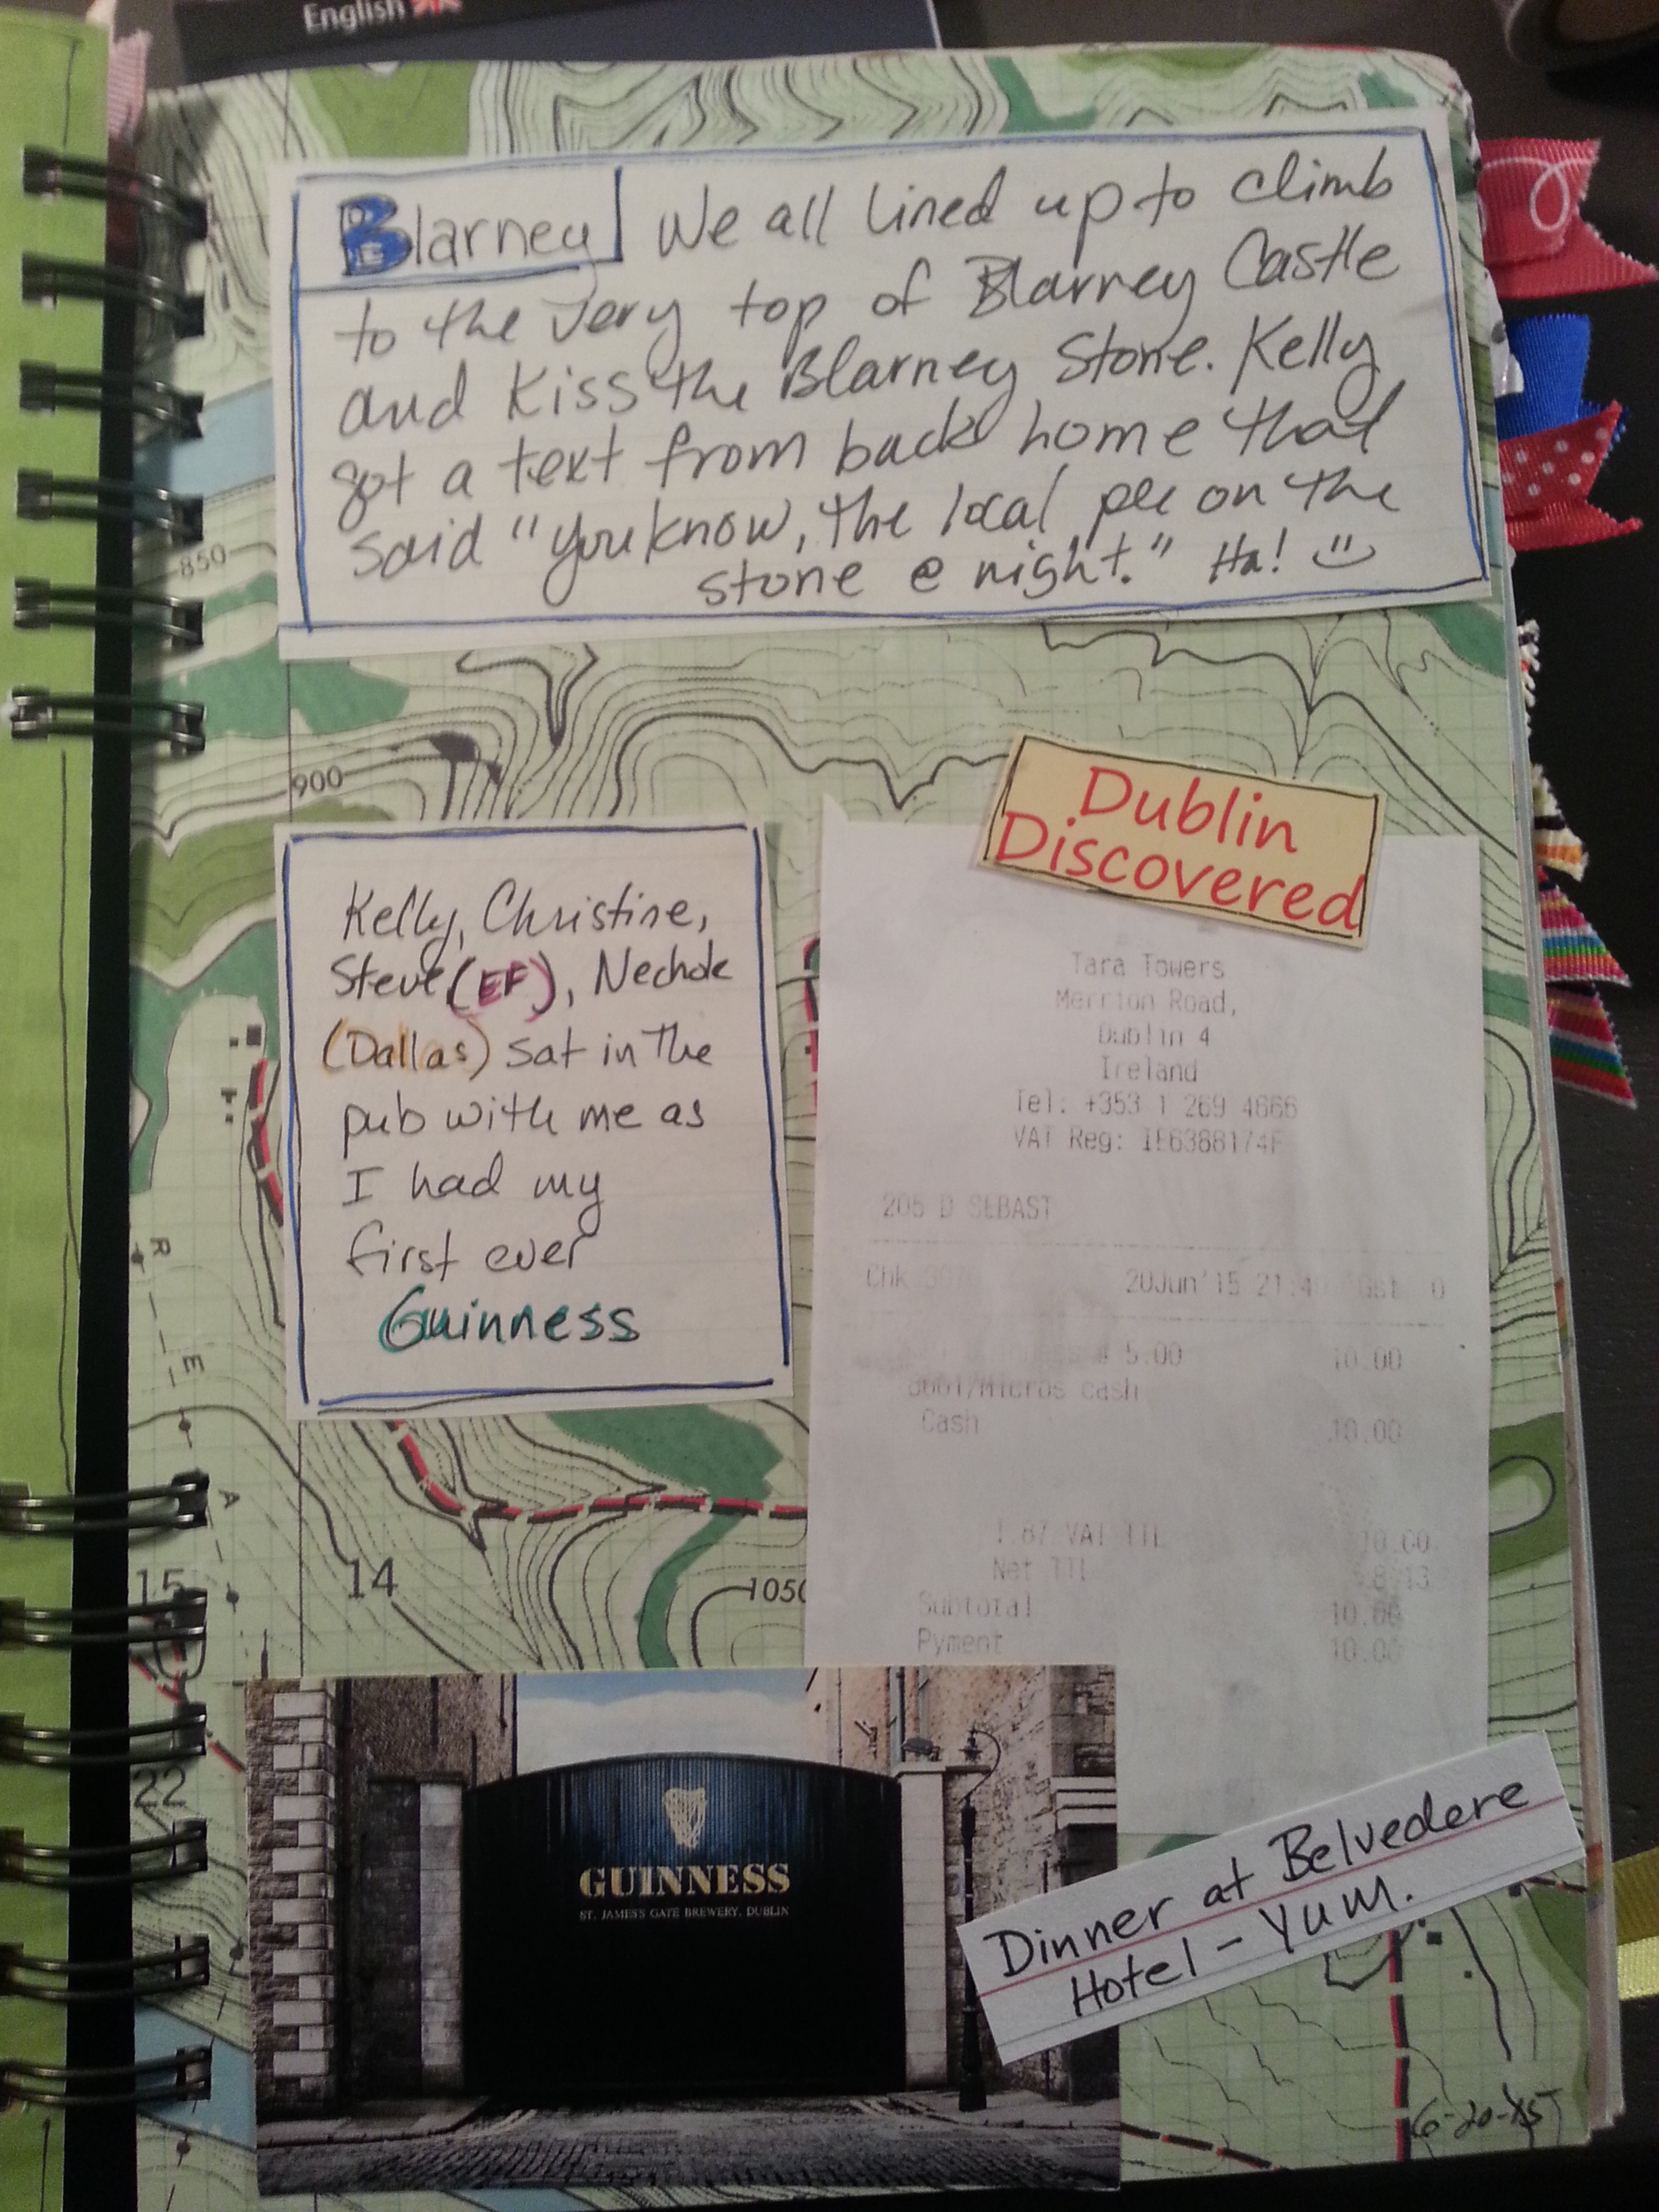 English
Blarney We all lined up to climb
to the very top of Blarney Castle
and kiss the Blarney Stone. Kelly
got a text from back home that
said "you know, the local pee on the
stone @ night." Ha!
850
900
Dublin
Discovered
Kelly, Christine,
Steve (EF), Nechole
(Dallas) sat in the
pub with me as
I had my
first ever
Guinness
Tara Towers
Merrion Road,
Dublin 4
Ireland
Tel: +353 1 269 4666
VAT Reg: IE6388174F
205 D SEBAST
Chk 20Jun'15 21:4 Gst 0
5.00 10.00
Cash
Cash 10.00
1.87 VAT TTL 10.00
Net TTL 8.13
Subtotal 10.00
Pyment 10.00
R
E
A
15
14
1050
22
GUINNESS
ST. JAMES'S GATE BREWERY. DUBLIN
Dinner at Belvedere
Hotel - Yum.
6-20-15